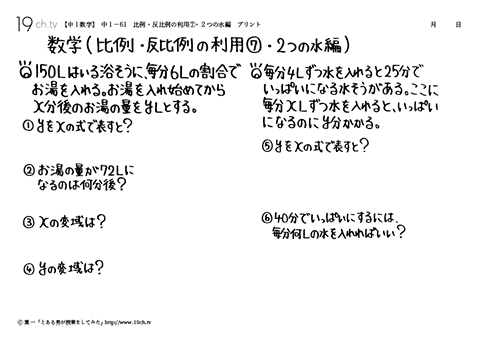 19ch.tv 【中1数学】 中1-61 比例・反比例の利用⑦・2つの水編 プリント 月 日
数学(比例・反比例の利用⑦・2つの水編)
150Lはいる浴そうに、毎分6Lの割合で
お湯を入れる。お湯を入れ始めてから
x分後のお湯の量をyLとする。
①yをxの式で表すと?
②お湯の量が72Lに
なるのは何分後?
③xの変域は?
④yの変域は?
毎分4Lずつ水を入れると25分で
いっぱいになる水そうがある。ここに
毎分xLずつ水を入れると、いっぱい
になるのにy分かかる。
⑤yをxの式で表すと?
⑥40分でいっぱいにするには、
毎分何Lの水を入れればいい?
Ⓒ葉一「とある男が授業をしてみた」http://www.19ch.tv